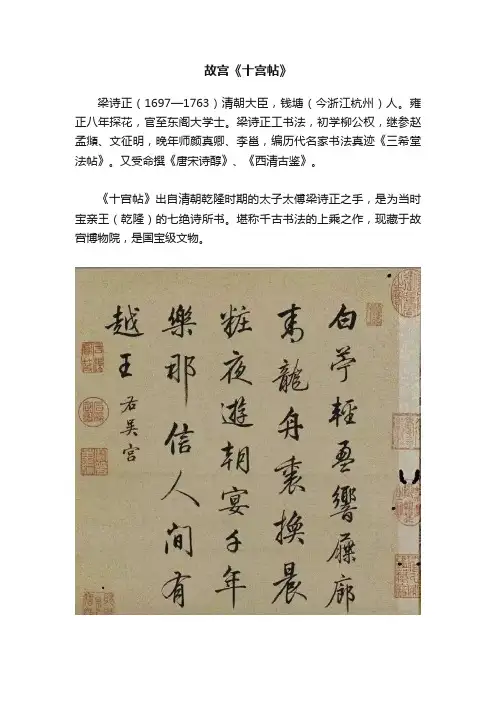 故宫《十宫帖》
梁诗正（1697—1763）清朝大臣，钱塘（今浙江杭州）人。雍
正八年探花，官至东阁大学士。梁诗正工书法，初学柳公权，继参赵
孟頫、文征明，晚年师颜真卿、李邕，编历代名家书法真迹《三希堂
法帖》。又受命撰《唐宋诗醇》、《西清古鉴》。
《十宫帖》出自清朝乾隆时期的太子太傅梁诗正之手，是为当时
宝亲王（乾隆）的七绝诗所书。堪称千古书法的上乘之作，现藏于故
宫博物院，是国宝级文物。
白苧輕盈響屧廊
青龍舟裏換晨
粧夜遊朝宴千年
樂那信人間有
越王 右吴宫